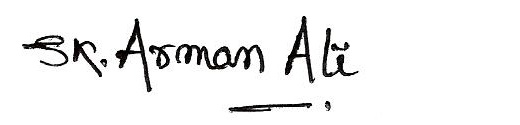 SK. Arman Ali